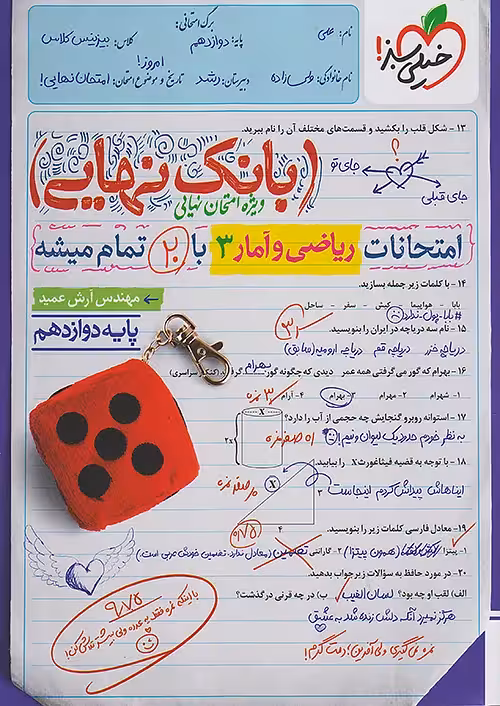 خیلی سبز!
برگ امتحانی:
نام: علی
پایه: دوازدهم
کلاس: بیزینس کلاس
نام خانوادگی: ولی‌زاده
دبیرستان: رشد
تاریخ و موضوع امتحان: امتحان نهایی!
امروز!
۱۳- شکل قلب را بکشید و قسمت‌های مختلف آن را نام ببرید.
؟
جای تو
جای قبلی
(بانک نهایی)
ویژه امتحان نهایی
امتحانات ریاضی و آمار ۳ با ۲۰ تمام میشه
۱۴- با کلمات زیر جمله بسازید.
بابا - هواپیما - کیش - سفر - ساحل
#بابا-پول-ندارد
← مهندس آرش عمید
۱۵- نام سه دریاچه در ایران را بنویسید.
دریاچه خزر دریاچه قم دریاچه ارومیه (سابق)
پایه دوازدهم
۱۶- بهرام که گور می‌گرفتی همه عمر دیدی که چگونه گور بهرام گرفت (کنکور سراسری)
۱- شهرام ۲- بهرام ۳- بهرام ۴- آرام
۱۷- استوانه روبرو گنجایش چه حجمی از آب را دارد؟
X
2x
به نظر خودم حدردیک لیوان ونیم!
۱۸- با توجه به قضیه فیثاغورث X را بیابید.
X
اینهاهاش پیداش کردم اینجاست
۳
۴
۱۹- معادل فارسی کلمات زیر را بنویسید.
۱- پیتزا (همون پیتزا) ۲- گارانتی تضمین (معادل ندارد. تضمین خودش عربی است)
۲۰- در مورد حافظ به سؤالات زیر جواب بدهید.
الف) لقب او چه بود؟ لسان الغیب ب) در چه قرنی درگذشت؟
هرگز نمیرد آنکه دلش زنده شد به عشق
نمره نمی‌گیری ولی آفرین! دمت گرم!
۹/۷۵